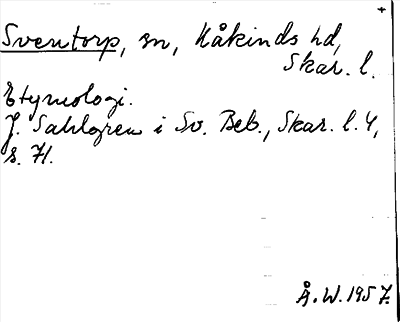 Sventorp, sn, Kåkinds hd,
Skar. l.
Etymologi.
J. Sahlgren i Sv. Beb., Skar. l. 4,
s. 71.
Å. W. 1957.